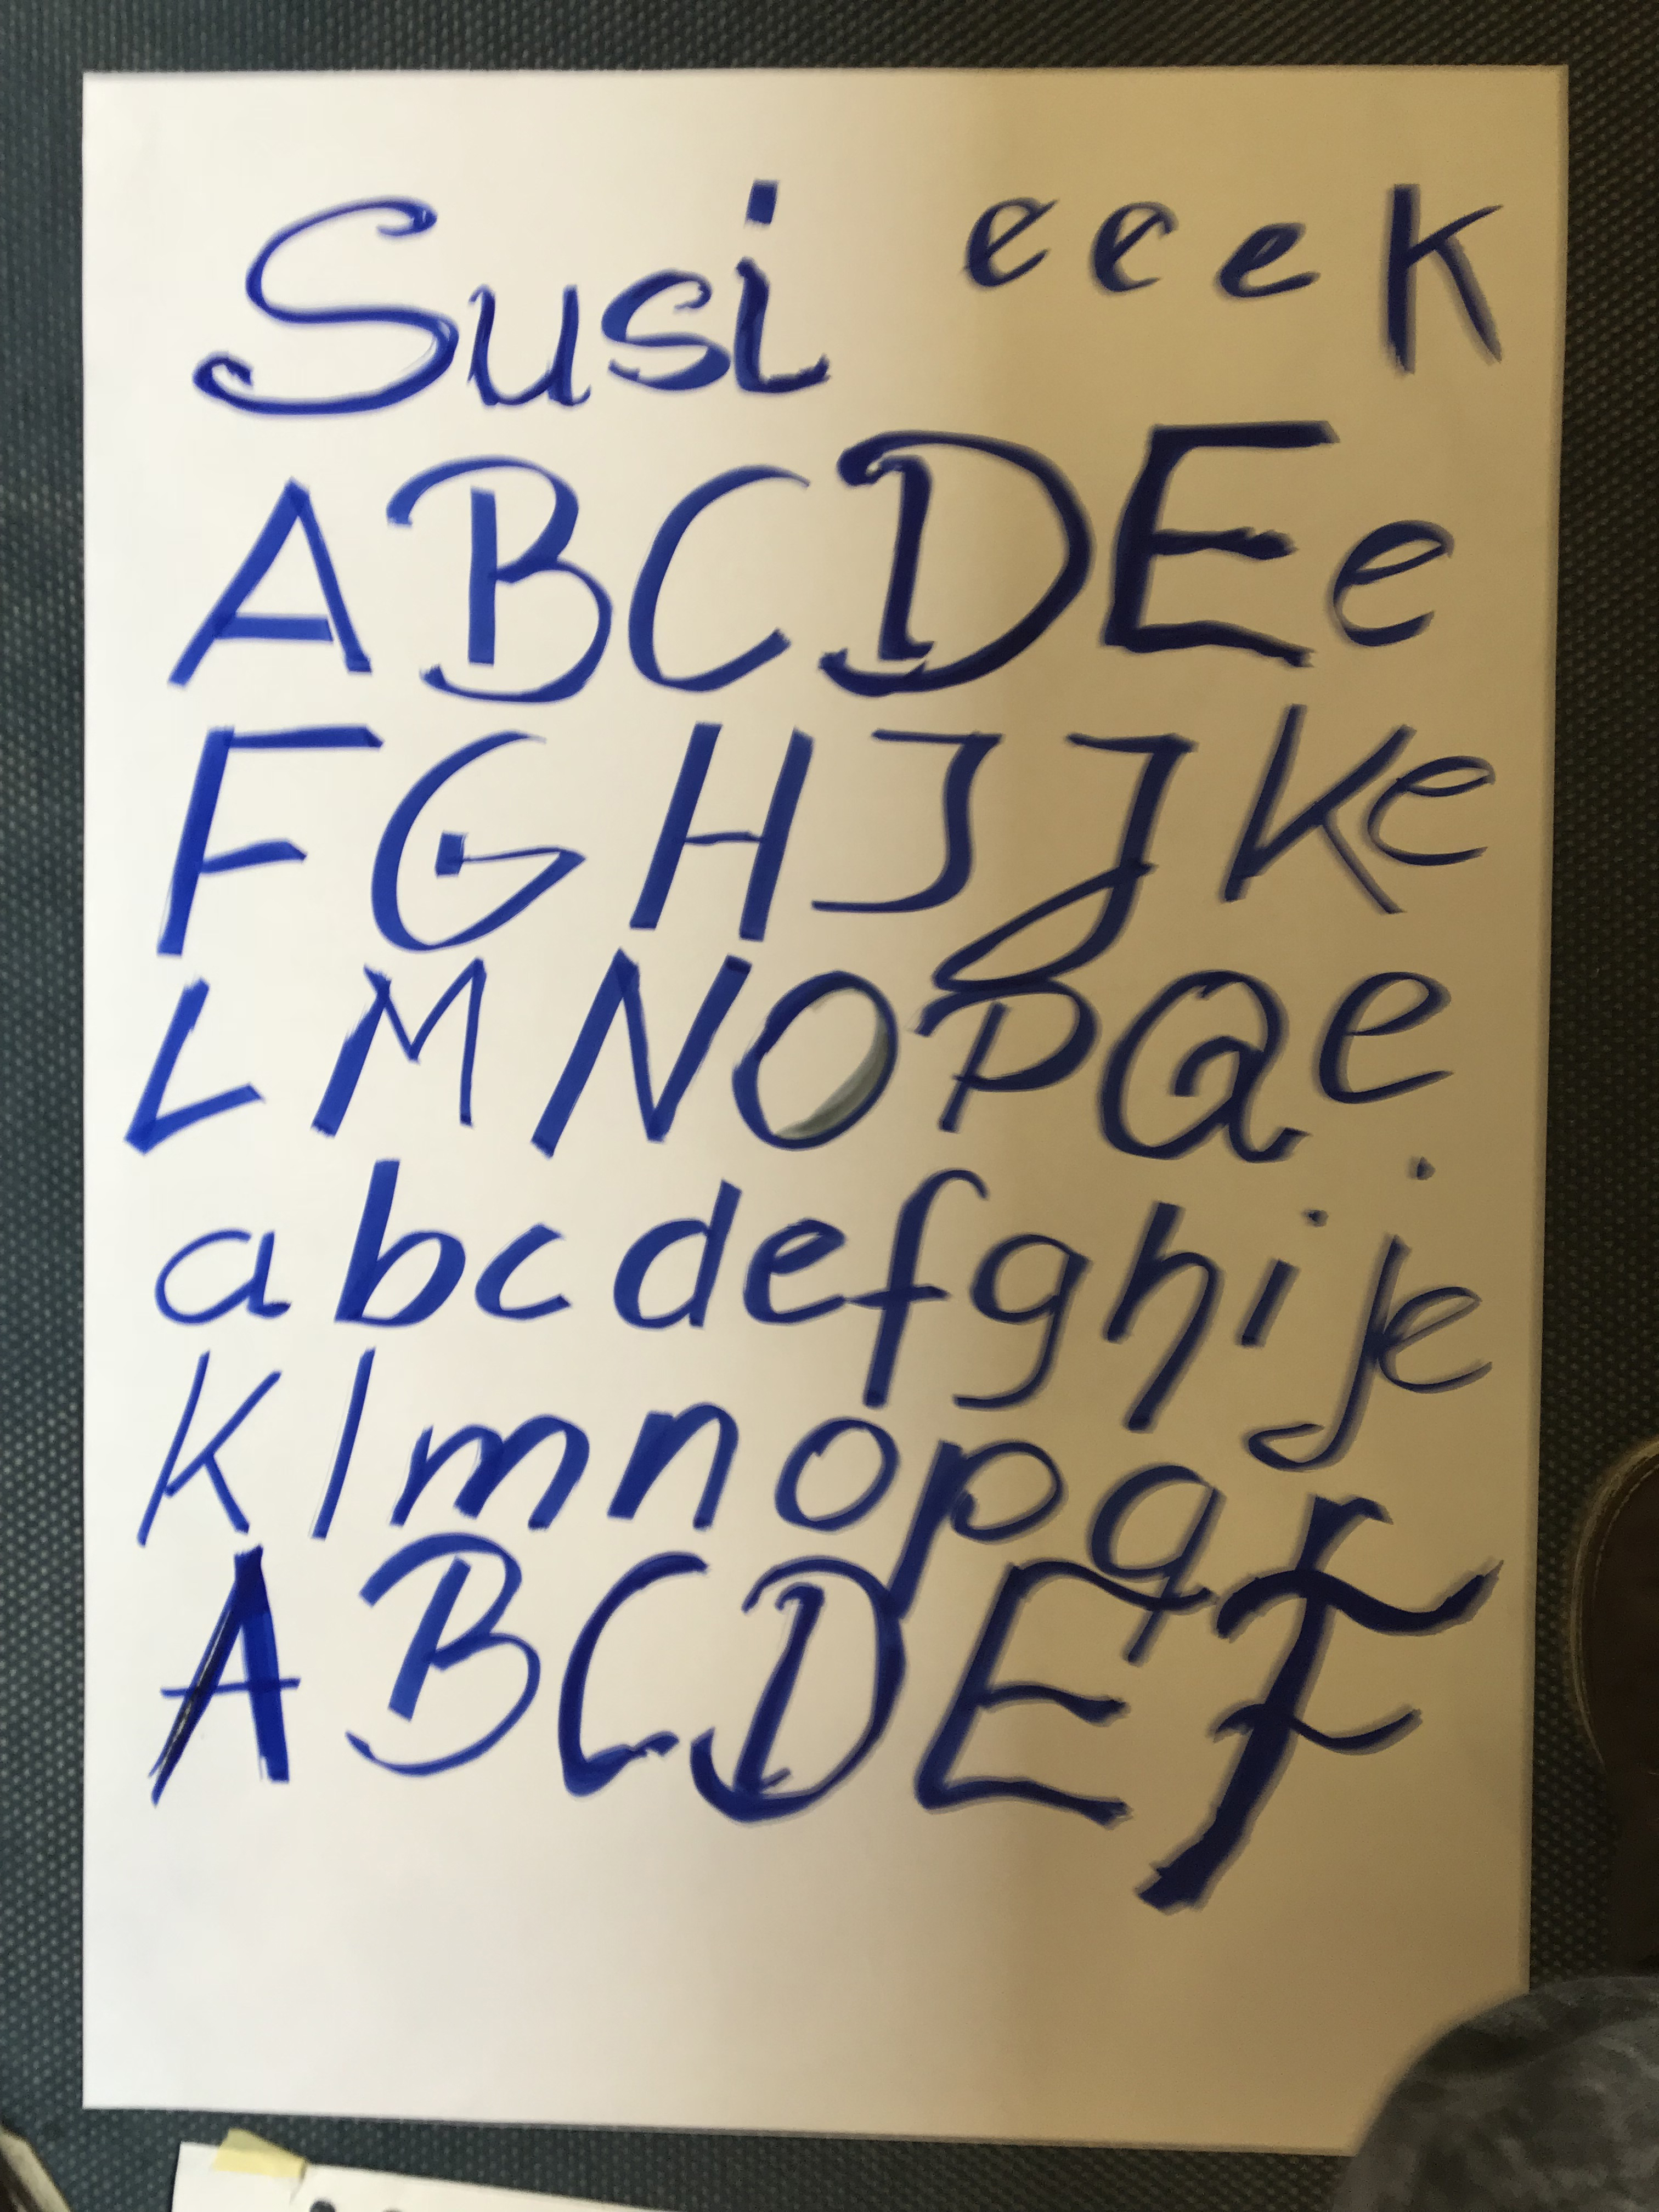 Susi e e e K
A B C D E e
F G H I J K e
L M N O P Q e
a b c d e f g h i j e
k l m n o p q r
A B C D E F